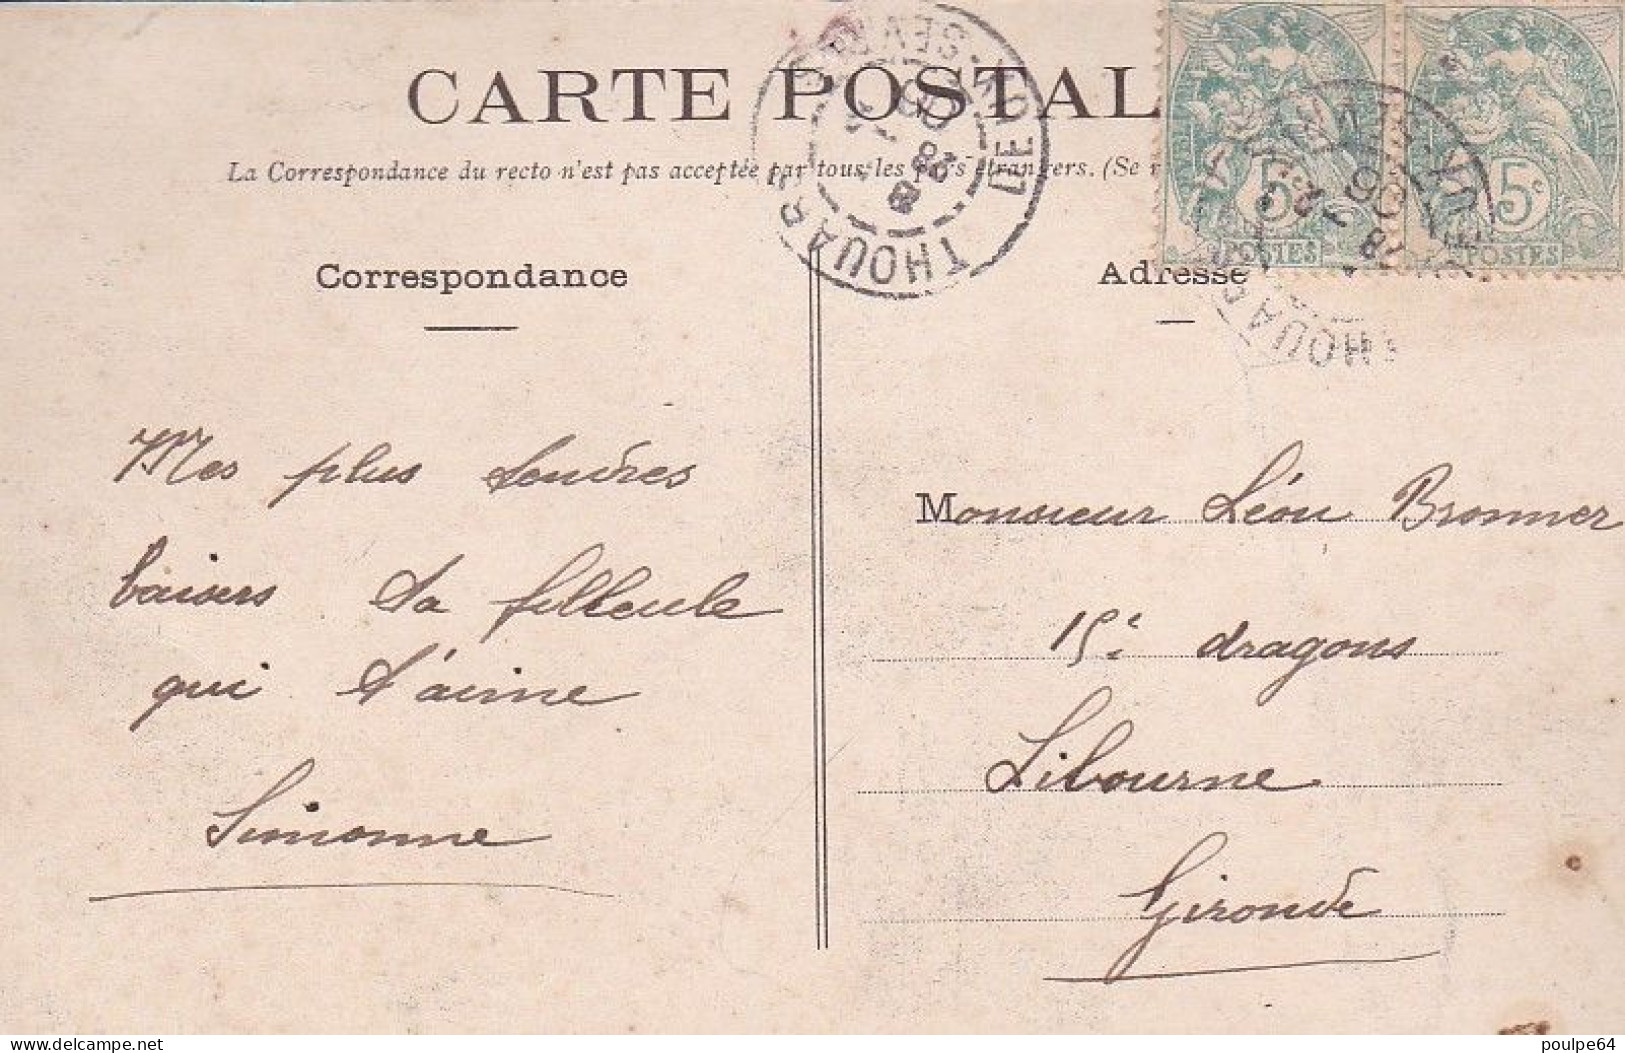 CARTE POSTAL
La Correspondance du recto n'est pas acceptée par tous les pays étrangers. (Se r
Correspondance
Adresse
Mes plus tendres
baisers ta filleule
qui t'aime
Simonne
Monsieur Léon Bronner
15e dragons
Libourne
Gironde
THOUARS
DEUX-SEVRES
5c
POSTES
5c
POSTES
THOUARS
delcampe.net
poulpe64